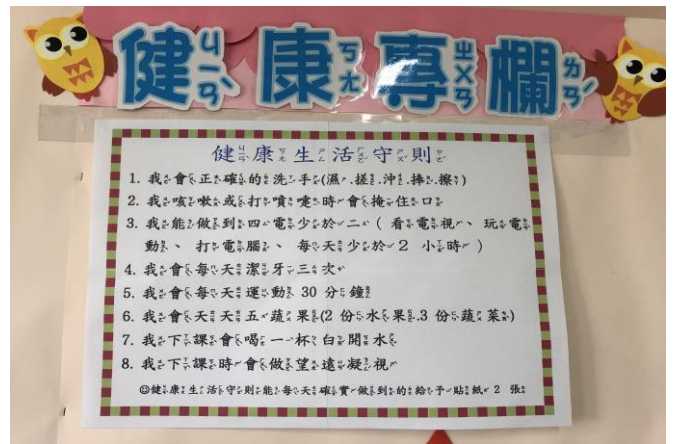 健康專欄
健康生活守則
1. 我會正確的洗手(濕.搓.沖.捧.擦)
2. 我咳嗽或打噴嚏時會掩住口
3. 我能做到四電少於二(看電視、玩電
動、打電腦、每天少於2 小時)
4. 我會每天潔牙三次
5. 我會每天運動 30 分鐘
6. 我會天天五蔬果(2 份水果.3 份蔬菜)
7. 我下課會喝一杯白開水
8. 我下課時會做望遠凝視
☺健康生活守則能每天確實做到的給予貼紙 2 張